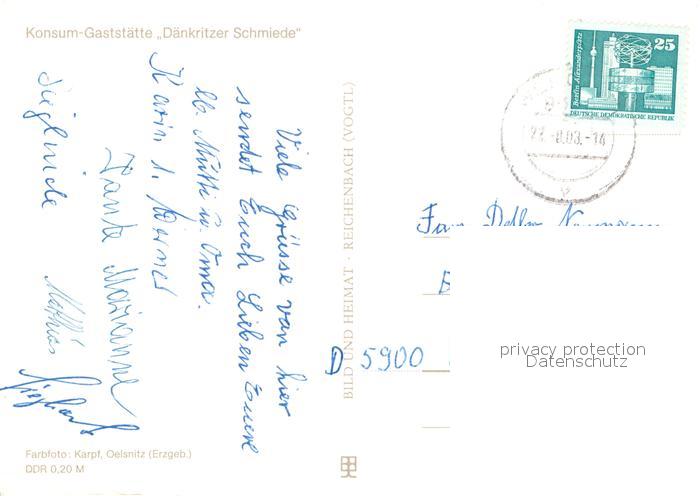 Konsum-Gaststätte „Dänkritzer Schmiede"
Viele Grüsse von hier
sendet Euch Lieben Eure
lb. Mutti u. Oma.
Karin u. Werner
Tante Marianne
Sieglinde
Mathias
BILD UND HEIMAT · REICHENBACH (VOGTL)
Berlin, Alexanderplatz
25
DEUTSCHE DEMOKRATISCHE REPUBLIK
-14
Fam.
D 5900
privacy protection
Datenschutz
Farbfoto: Karpf, Oelsnitz (Erzgeb.)
DDR 0,20 M